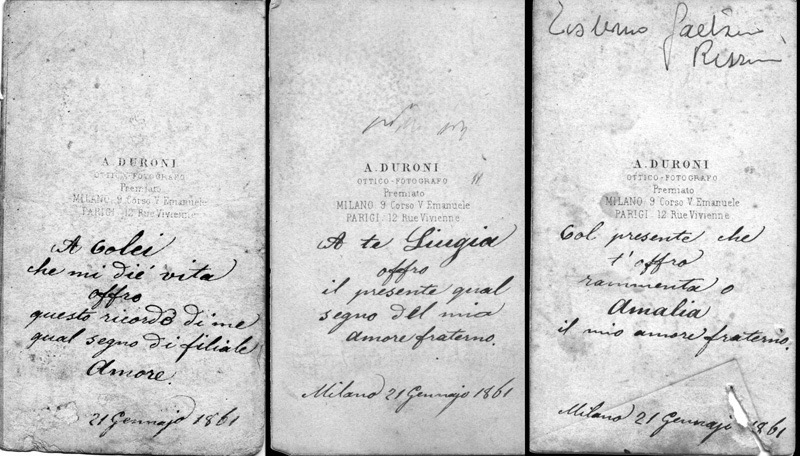 A. DURONI
OTTICO-FOTOGRAFO
Premiato
MILANO 9 Corso V. Emanuele
PARIGI 12 Rue Vivienne
A Colei
che mi die' vita
offro
questo ricordo di me
qual segno di filiale
Amore.
21 Gennajo 1861
A. DURONI
OTTICO-FOTOGRAFO
Premiato
MILANO 9 Corso V. Emanuele
PARIGI 12 Rue Vivienne
A te Liugia
offro
il presente qual
segno del mio
amore fraterno.
Milano 21 Gennajo 1861
Gaetano
A. DURONI
OTTICO-FOTOGRAFO
Premiato
MILANO 9 Corso V. Emanuele
PARIGI 12 Rue Vivienne
Col presente che
t'offro
rammenta o
Amalia
il mio amore fraterno.
Milano 21 Gennajo 1861